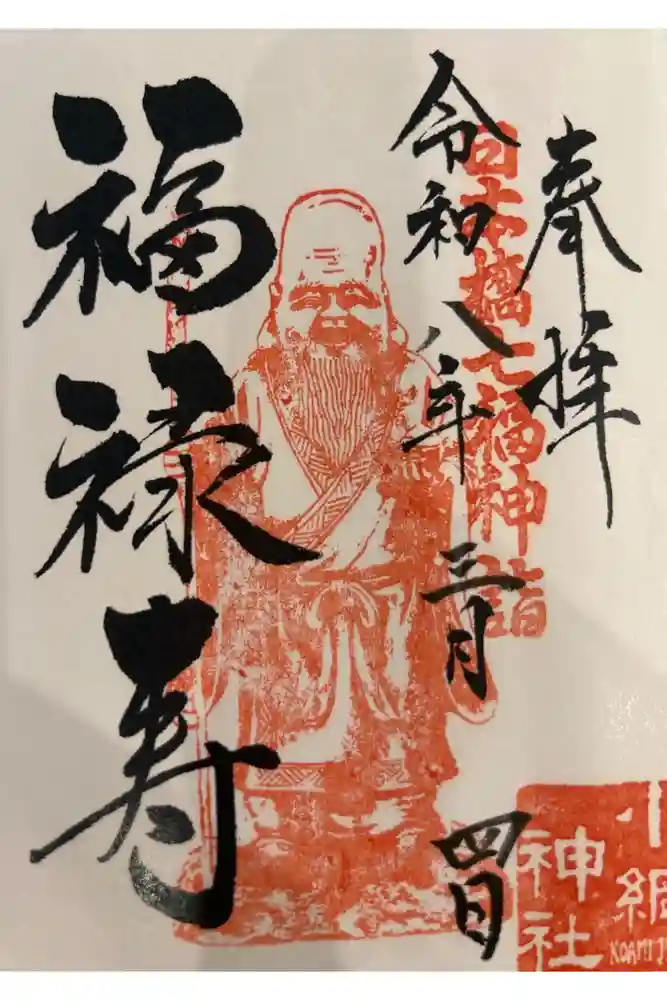 奉拝
日本橋七福神詣
令和八年三月四日
福禄寿
小網
神社